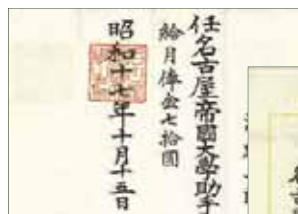 任名古屋帝國大學助手
給月俸金七拾圓
昭和十七年十月十五日